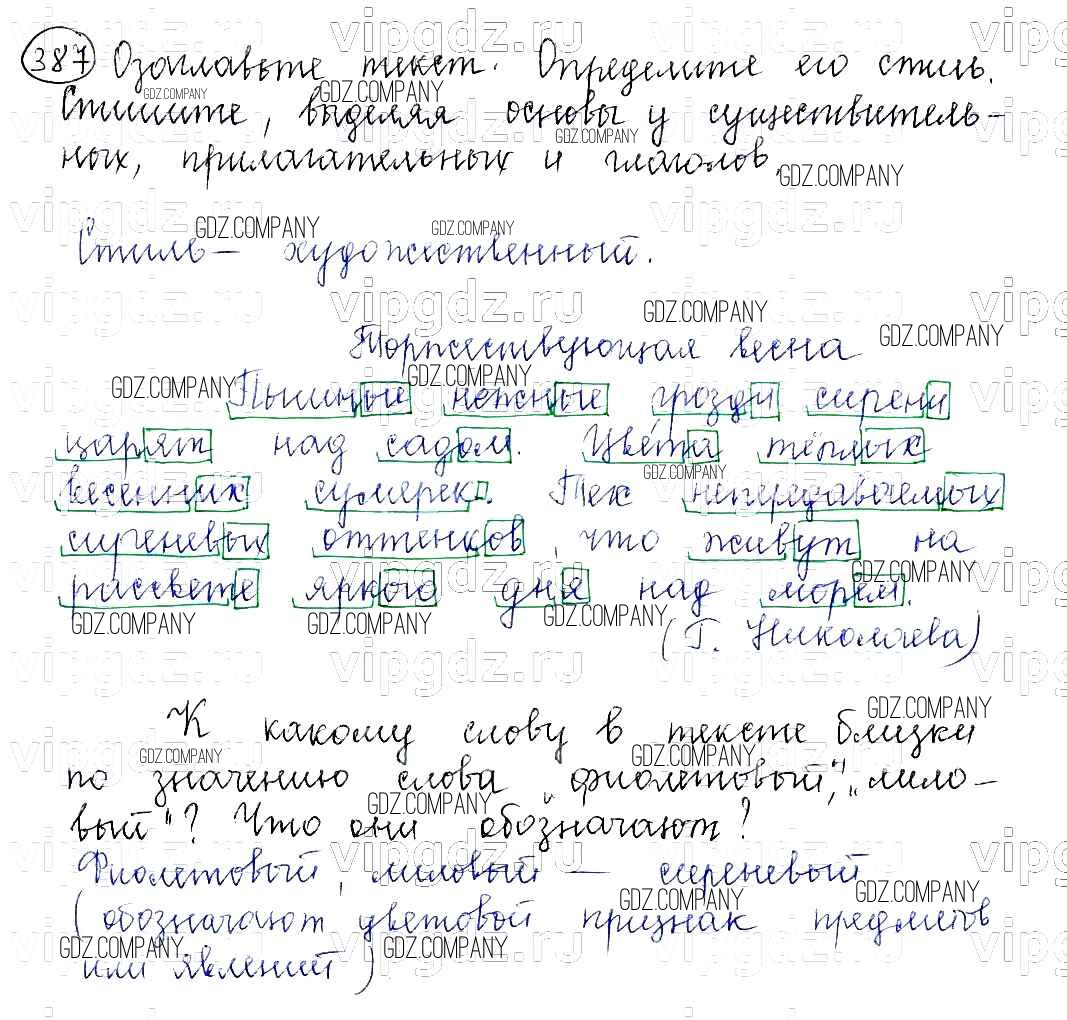 387 Озаглавьте текст. Определите его стиль.
Спишите, выделяя основы у существитель-
ных, прилагательных и глаголов.
Стиль — художественный.
Торжествующая весна
Пышные нежные грозди сирени
царят над садом. Цвета тёплых
весенних сумерек. Тех непередаваемых
сиреневых оттенков, что живут на
рассвете яркого дня над морем.
(Г. Николаева)
К какому слову в тексте близки
по значению слова „фиолетовый", „лило-
вый"? Что они обозначают?
Фиолетовый, лиловый — сиреневый
(обозначают цветовой признак предметов
или явлений)